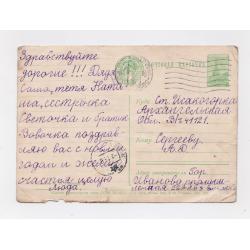 Здравствуйте
дорогие !!! Дядя
Саша, тетя Ната-
ша, сестрёнка
Светочка и братик
Вовочка поздрав-
ляю вас с новым
годом и желаю
счастья целую
Люда.
ПОЧТОВАЯ КАРТОЧКА
Куда: Ст. Исакогорка
Архангельская
Обл.
Кому: Сергееву
Гор.
Иваново